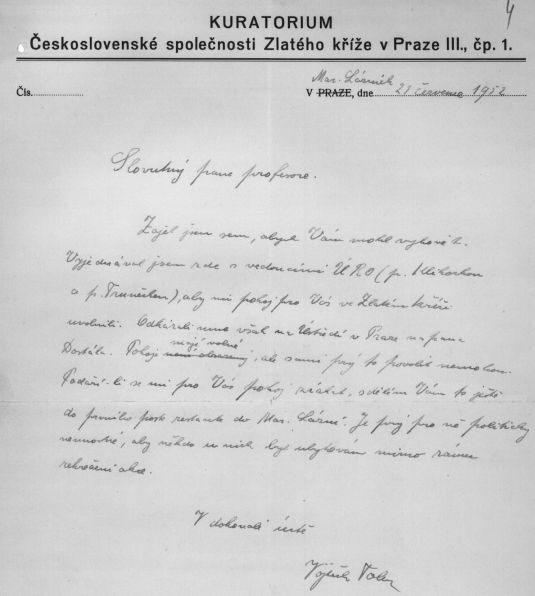 4
KURATORIUM
Československé společnosti Zlatého kříže v Praze III., čp. 1.
Mar. Lázních
Čís. V PRAZE, dne 21 července 1952
Slovutný pane profesore.
Zajel jsem sem, abych Vám mohl vyhovět.
Vyjednával jsem zde s vedoucími ÚRO (p. Klihockou
a p. Truněčkem), aby mi pokoj pro Vás ve Zlatém kříži
uvolnili. Odkázali mne však na Ústředí v Praze na pana
mají volné
Dostála. Pokoj není obsazený, ale sami prý to povolit nemohou.
Podaří-li se mi pro Vás pokoj získat, sdělím Vám to ještě
do prvního poste restante do Mar. Lázní. Je prý pro ně politicky
nemožné, aby někdo u nich byl ubytován mimo rámec
rekreační akce.
V dokonalé úctě
Vojtěch